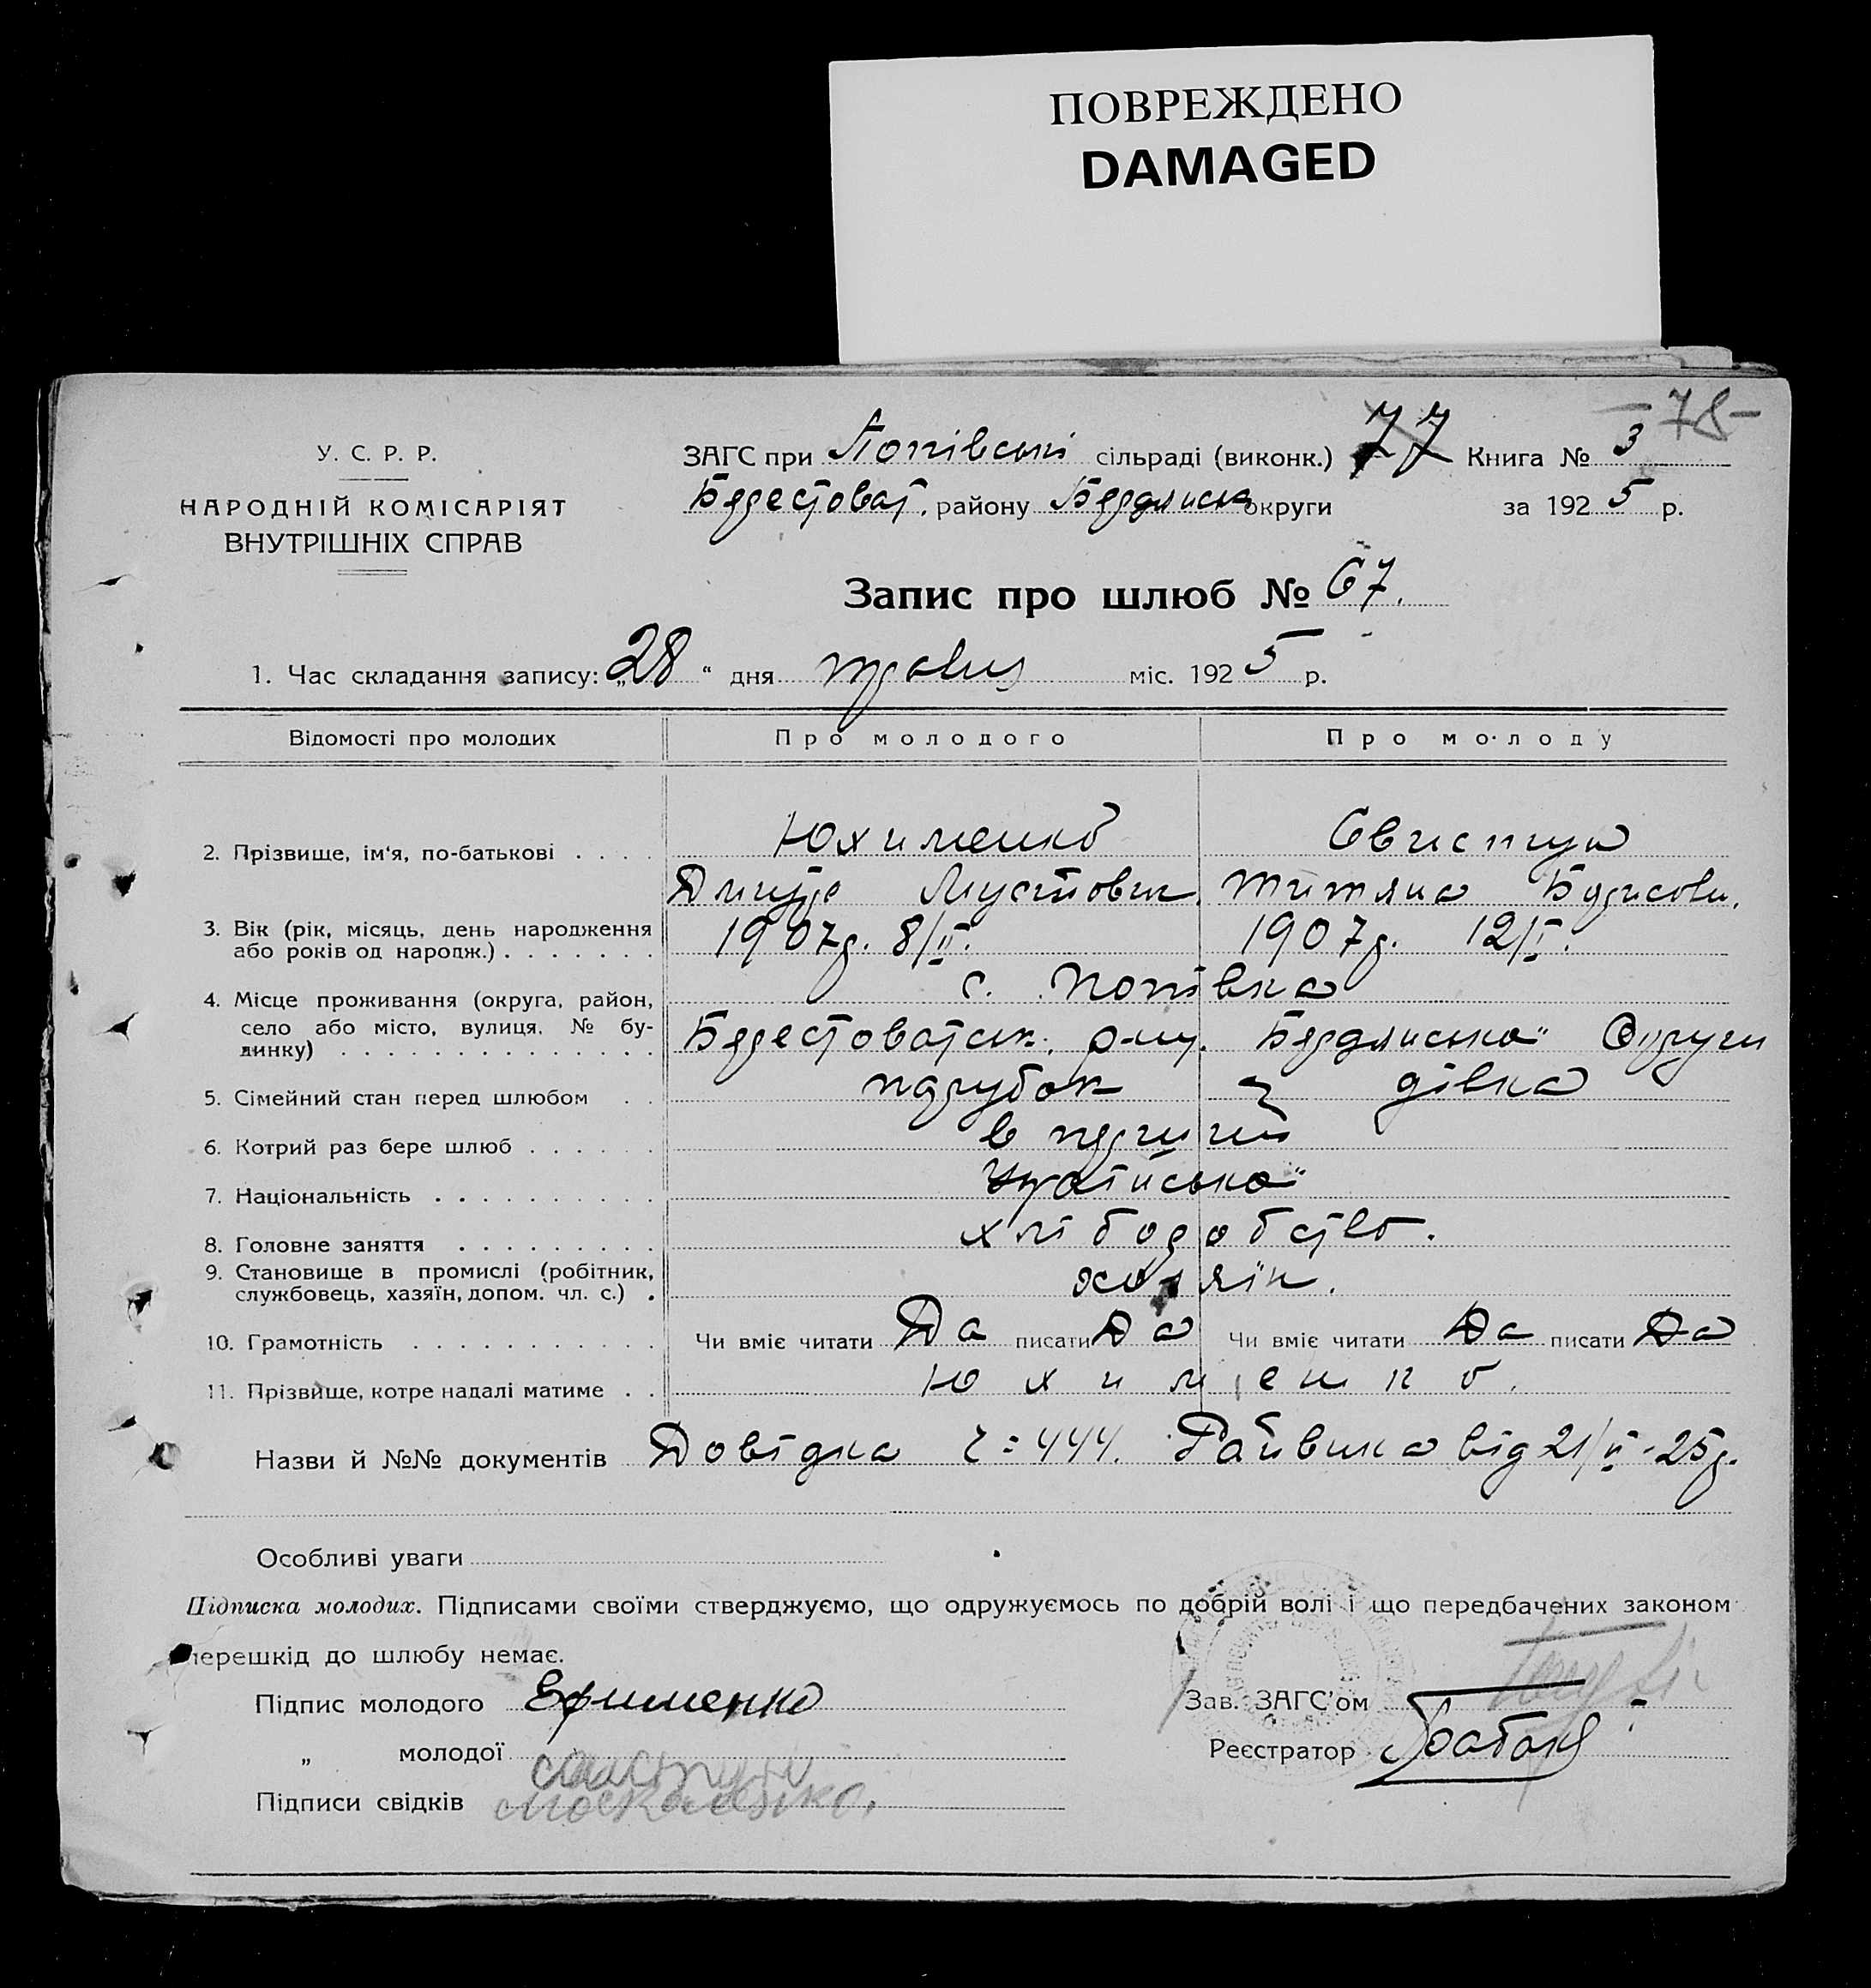 ПОВРЕЖДЕНО
DAMAGED
78
У. С. Р. Р.
НАРОДНІЙ КОМІСАРІЯТ
ВНУТРІШНІХ СПРАВ
ЗАГС при Попівські сільраді (виконк.) 77 Книга № 3
Берестоват. району Бердянськ округи за 1925 р.
Запис про шлюб № 67.
1. Час складання запису: „28“ дня травня міс. 1925 р.
Відомості про молодих Про молодого Про молоду
2. Прізвище, ім'я, по-батькові . . . . Юхименко Свистун
Дмитро Мусійович. Титяна Борисовн.
3. Вік (рік, місяць, день народження
або років од народж.) . . . . . . . 1907р. 8/II. 1907р. 12/I.
с. Попівка
4. Місце проживання (округа, район,
село або місто, вулиця, № бу-
динку) . . . . . . . . . . . . . . Берестоватськ. р-ну. Бердянської Округи
5. Сімейний стан перед шлюбом . . парубок дівка
6. Котрий раз бере шлюб . . . . . . в перший
7. Національність . . . . . . . . . .
8. Головне заняття . . . . . . . . . хліборобство.
9. Становище в промислі (робітник,
службовець, хазяїн, допом. чл. с.) . хазяїн.
10. Грамотність . . . . . . . . . . . Чи вміє читати Да писати Да Чи вміє читати Да писати Да
11. Прізвище, котре надалі матиме . . Юхименко.
Назви й №№ документів Довідка ч=444. від 21/V-25р.
Особливі уваги
Підписка молодих. Підписами своїми стверджуємо, що одружуємось по добрій волі і що передбачених законом
перешкід до шлюбу немає.
Підпис молодого Ефименко Зав. ЗАГС'ом
„ молодої Реєстратор
Підписи свідків